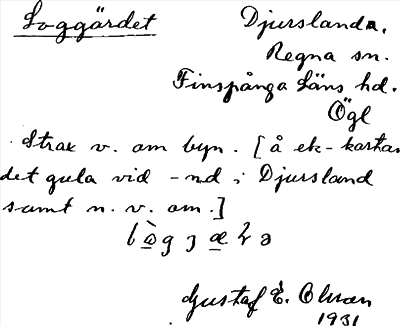 Loggärdet
Djurslanda.
Regna sn.
Finspånga Läns hd.
Ögl
Strax v. om byn. [å ek-kartan
det gula vid -nd i Djursland
samt n. v. om.]
Gustaf E. Olson
1931